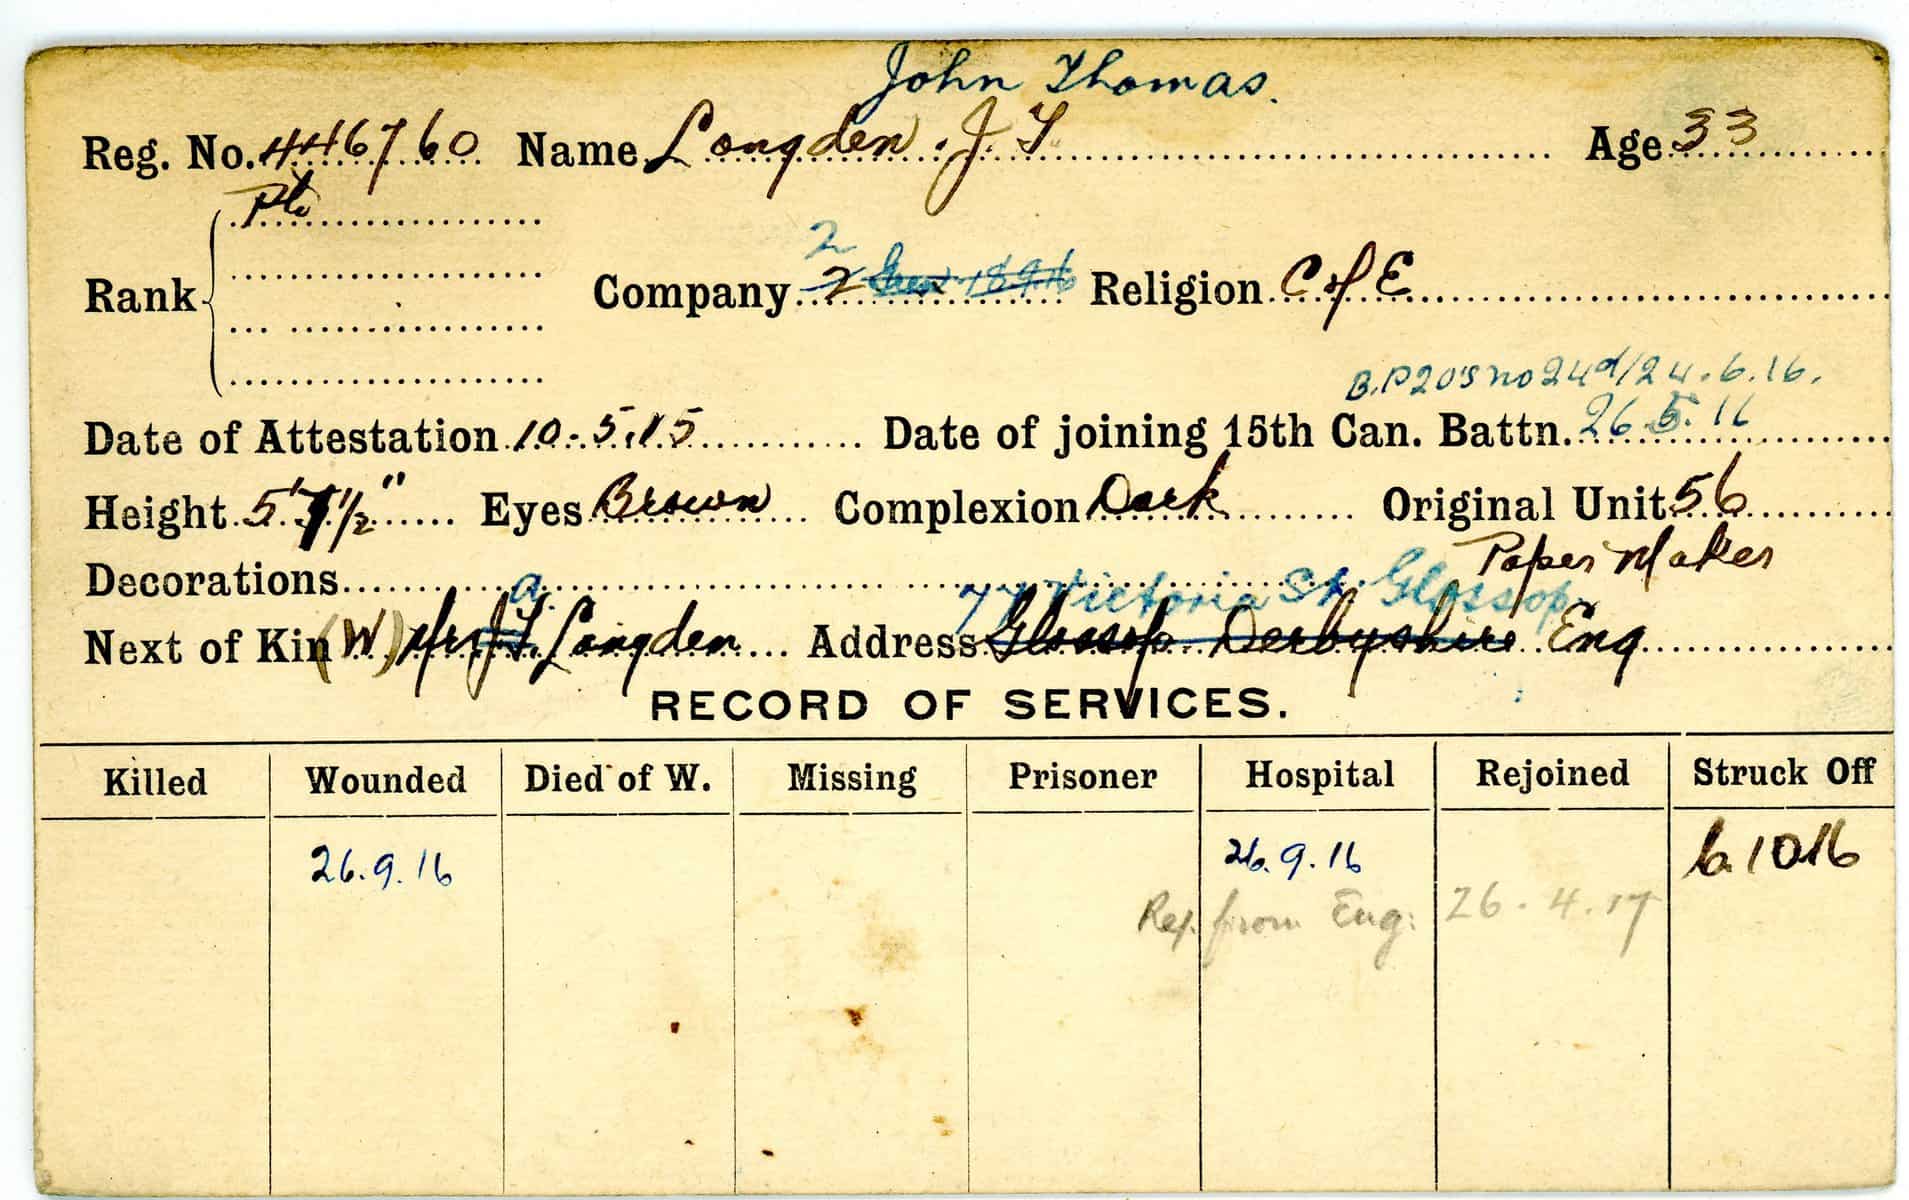 John Thomas.
Reg. No. 446760 Name Longden. J. T Age 33
Pte
2
Rank Company 2 18.9.16 Religion C of E
B.P 20's no 24 d/24.6.16.
Date of Attestation 10.5.15 Date of joining 15th Can. Battn. 26 5. 16
Height 5' 7 1/2" Eyes Brown Complexion Dark Original Unit 56
Decorations Paper Maker
a. 77 Victoria St. Glossop
Next of Kin (W) Mrs J. T. Longden Address Glossop Derbyshire Eng
RECORD OF SERVICES.
Killed Wounded Died of W. Missing Prisoner Hospital Rejoined Struck Off
26.9.16 26.9.16 6.10.16
Rej. from Eng: 26.4.17